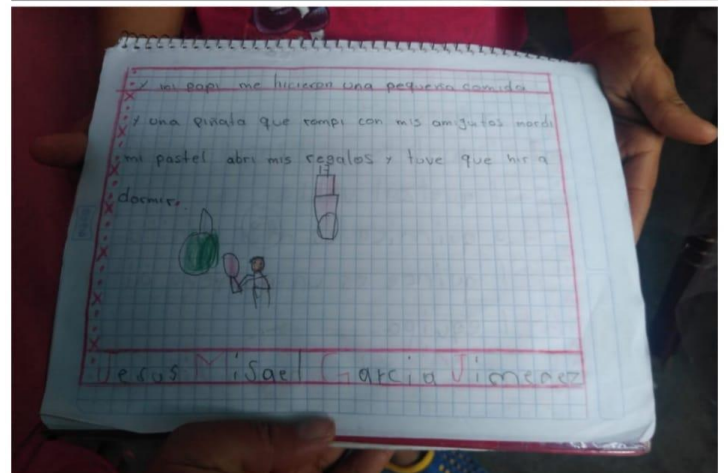 y mi papi me hicieron una pequeña comida
y una piñata que rompi con mis amiguitos mordi
mi pastel abri mis regalos y tuve que hir a
dormir.
Jesus Misael Garcia Jimenez